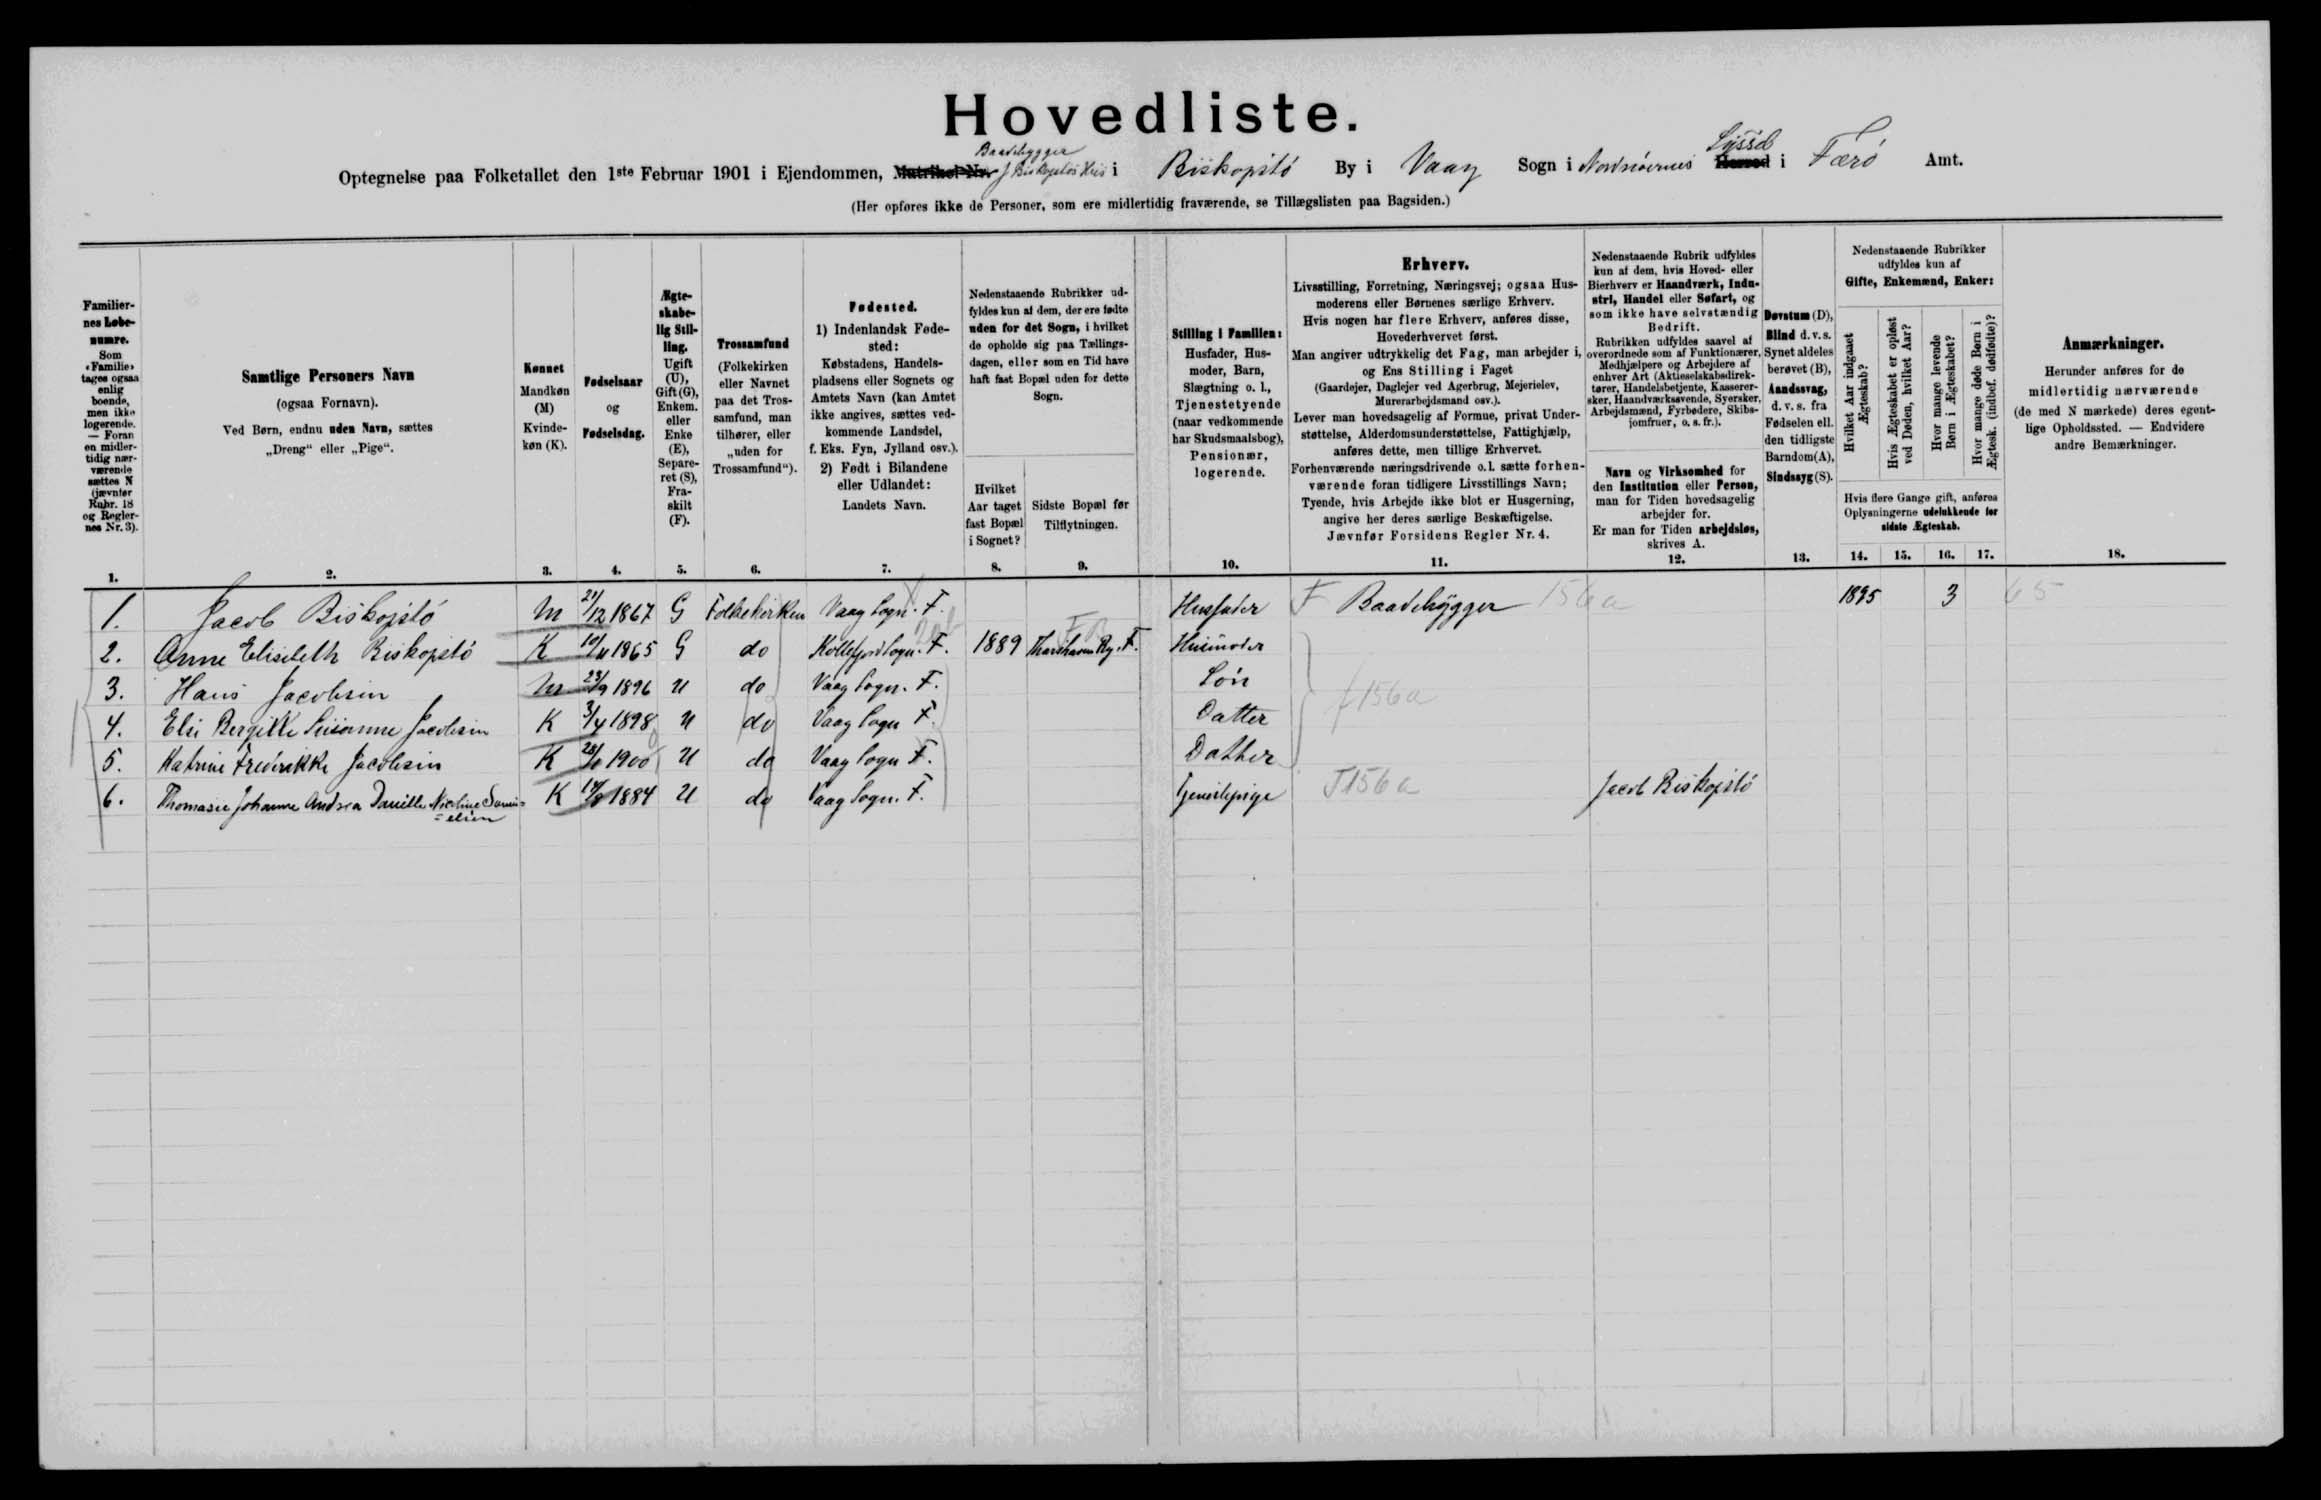 Hovedliste.
Optegnelse paa Folketallet den 1ste Februar 1901 i Ejendommen, Matrikel-Nr. Baadebygger J Biskopstøs Hus i Biskopstó By i Vaag Sogn i Nordrøernes Herred Syssel i Færó Amt.
(Her opføres ikke de Personer, som ere midlertidig fraværende, se Tillægslisten paa Bagsiden.)
Familiernes Løbenumre.
Som «Familie» tages ogsaa enlig boende, men ikke logerende. — Foran en midlertidig nærværende sættes N (jævnfør Rubr. 18 og Reglernes Nr. 3).
Samtlige Personers Navn
(ogsaa Fornavn).
Ved Børn, endnu uden Navn, sættes
„Dreng“ eller „Pige“.
Kønnet
Mandkøn
(M)
Kvinde-
køn (K).
Fødselsaar
og
Fødselsdag.
Ægte-
skabe-
lig Stil-
ling.
Ugift
(U),
Gift (G),
Enkem.
eller
Enke
(E),
Separe-
ret (S),
Fra-
skilt
(F).
Trossamfund
(Folkekirken
eller Navnet
paa det Tros-
samfund, man
tilhører, eller
„uden for
Trossamfund“).
Fødested.
1) IndenlandskFøde-
sted:
Købstadens, Handels-
pladsens eller Sognets og
Amtets Navn (kan Amtet
ikke angives, sættes ved-
kommende Landsdel,
f. Eks. Fyn, Jylland osv.).
2) Født i Bilandene
eller Udlandet:
Landets Navn.
Nedenstaaende Rubrikker ud-
fyldes kun af dem, der ere fødte
uden for det Sogn, i hvilket
de opholde sig paa Tællings-
dagen, eller som en Tid have
haft fast Bopæl uden for dette
Sogn.
Hvilket
Aar taget
fast Bopæl
i Sognet?
Sidste Bopæl før
Tilflytningen.
Stilling i Familien:
Husfader, Hus-
moder, Barn,
Slægtning o. l.,
Tjenestetyende
(naar vedkommende
har Skudsmaalsbog),
Pensionær,
logerende.
Erhverv.
Livsstilling, Forretning, Næringsvej; ogsaa Hus-
moderens eller Børnenes særlige Erhverv.
Hvis nogen har flere Erhverv, anføres disse,
Hovederhvervet først.
Man angiver udtrykkelig det Fag, man arbejder i,
og Ens Stilling i Faget
(Gaardejer, Daglejer ved Agerbrug, Mejerielev,
Murerarbejdsmand osv.).
Lever man hovedsagelig af Formue, privat Under-
støttelse, Alderdomsunderstøttelse, Fattighjælp,
anføres dette, men tillige Erhvervet.
Forhenværende næringsdrivende o. l. sætte forhen-
værende foran tidligere Livsstillings Navn;
Tyende, hvis Arbejde ikke blot er Husgerning,
angive her deres særlige Beskæftigelse.
Jævnfør Forsidens Regler Nr. 4.
Nedenstaaende Rubrik udfyldes
kun af dem, hvis Hoved- eller
Bierhverv er Haandværk, Indu-
stri, Handel eller Søfart, og
som ikke have selvstændig
Bedrift.
Rubrikken udfyldes saavel af
overordnede som af Funktionærer,
Medhjælpere og Arbejdere af
enhver Art (Aktieselskabsdirek-
tører, Handelsbetjente, Kasserer-
sker, Haandværkssvende, Syersker,
Arbejdsmænd, Fyrbødere, Skibs-
jomfruer, o. s. fr.).
Navn og Virksomhed for
den Institution eller Person,
man for Tiden hovedsagelig
arbejder for.
Er man for Tiden arbejdsløs,
skrives A.
Døvstum (D),
Blind d. v. s.
Synet aldeles
berøvet (B),
Aandssvag,
d. v. s. fra
Fødselen ell.
den tidligste
Barndom (A),
Sindssyg (S).
Nedenstaaende Rubrikker
udfyldes kun af
Gifte, Enkemænd, Enker:
Hvilket Aar indgaaet Ægteskab?
Hvis Ægteskabet er opløst ved Døden, hvilket Aar?
Hvor mange levende Børn i Ægteskabet?
Hvor mange døde Børn i Ægtesk. (indbef. dødfødte)?
Hvis flere Gange gift, anføres
Oplysningerne udelukkende for
sidste Ægteskab.
Anmærkninger.
Herunder anføres for de
midlertidig nærværende
(de med N mærkede) deres egent-
lige Opholdssted. — Endvidere
andre Bemærkninger.
1. 2. 3. 4. 5. 6. 7. 8. 9. 10. 11. 12. 13. 14. 15. 16. 17. 18.
1. Jacob Biskopstó M 21/12 1867 G Folkekirken Vaag Sogn. F. Husfader F Baadebÿgger 156a 1895 3 65
2. Anne Elisebeth Biskopstó K 10/11 1865 G do Kollefjord Sogn. F. 1889 Thorshavn By. F. Husmoder
3. Hans Jacobsen M 23/9 1896 U do Vaag Sogn. F. Són f156a
4. Else Bergitte Susanne Jacobsen K 3/4 1898 U do Vaag Sogn F. Datter
5. Katrine Frederikke Jacobsen K 1900 U do Vaag Sogn F. Datter
6. Thomasie Johanne Andrea Danielle Nicoline Samu= K 1884 U do Vaag Sogn. F. Tjenestepige T156a Jacob Biskopstó
=elsen